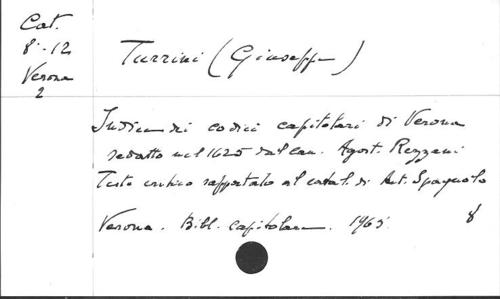 Cat.
8·-12
Verona
2
Turrini (Giuseppe)
Indice dei codici capitolari di Verona
redatto nel 1625 dal can. Agost. Rezzani
Testo critico rapportato al catal. di Ant. Spagnolo
Verona. Bibl. capitolare. 1965. 8